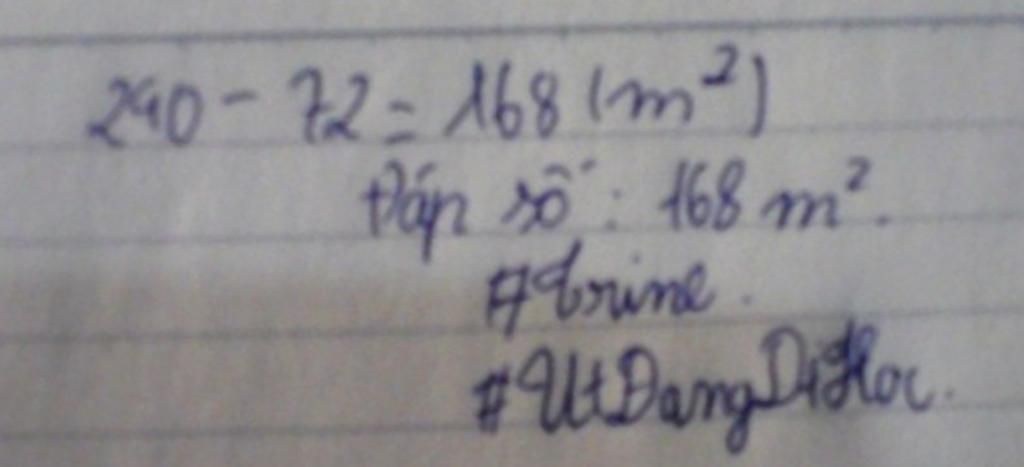 240 - 72 = 168 (m²)
Đáp số : 168 m².
#Crime.
#UtDangDiHoc.